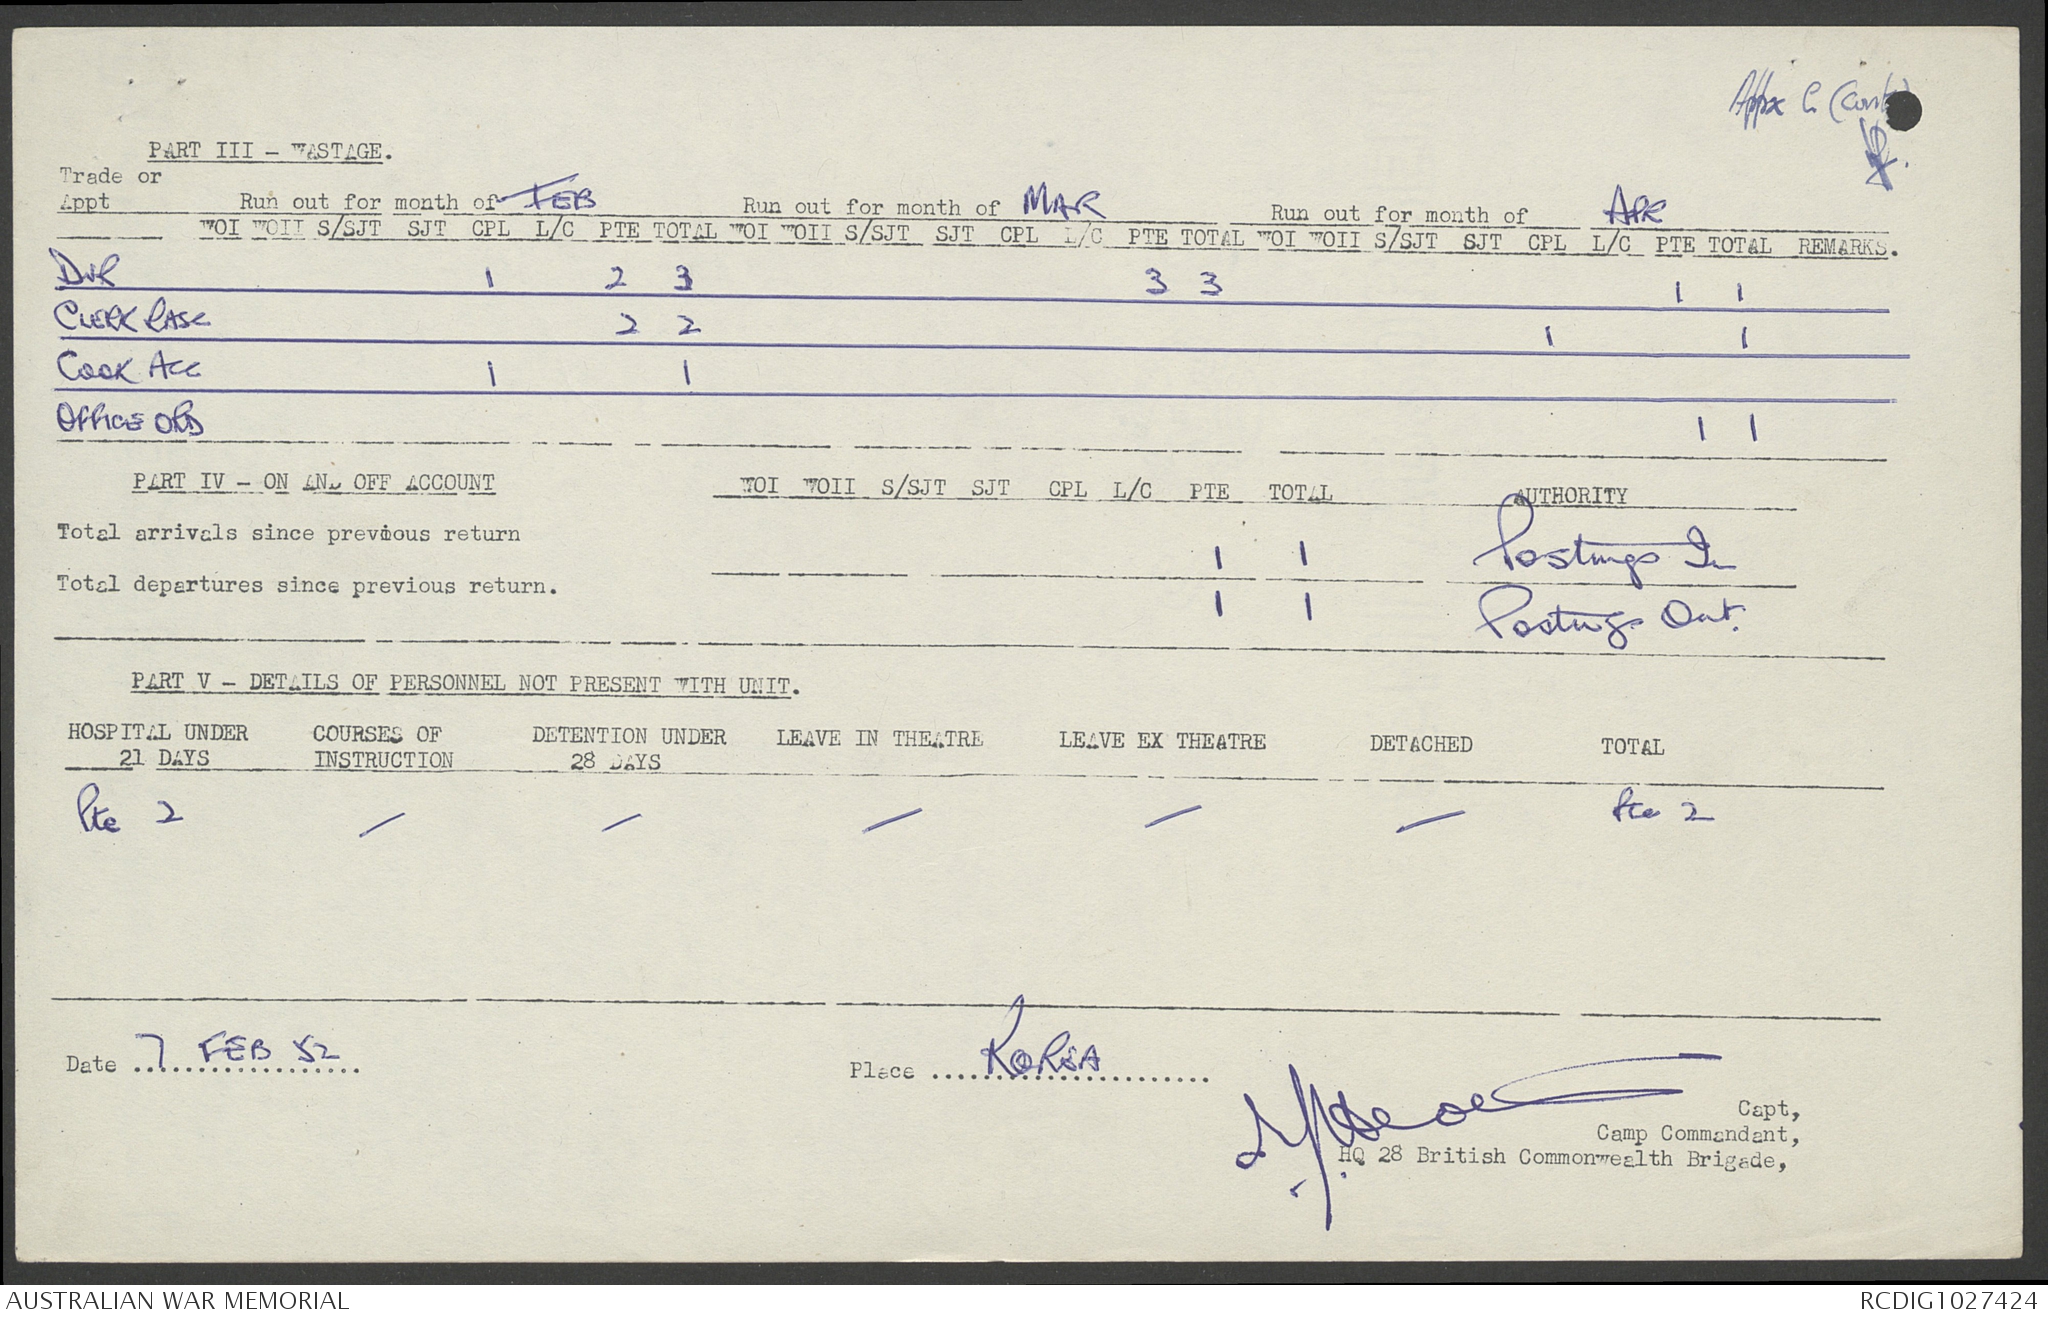 Appx C (Cont)
PART III - WASTAGE.
Trade or
Appt Run out for month of FEB Run out for month of MAR Run out for month of APR
WOI WOII S/SJT SJT CPL L/C PTE TOTAL WOI WOII S/SJT SJT CPL L/C PTE TOTAL WOI WOII S/SJT SJT CPL L/C PTE TOTAL REMARKS.
DVR 1 2 3 3 3 1 1
CLERK RASC 2 2 1 1
COOK ACC 1 1
OFFICE ORD 1 1
PART IV - ON AND OFF ACCOUNT WOI WOII S/SJT SJT CPL L/C PTE TOTAL AUTHORITY
Total arrivals since previous return 1 1 Postings In
Total departures since previous return. 1 1 Postings Out.
PART V - DETAILS OF PERSONNEL NOT PRESENT WITH UNIT.
HOSPITAL UNDER COURSES OF DETENTION UNDER LEAVE IN THEATRE LEAVE EX THEATRE DETACHED TOTAL
21 DAYS INSTRUCTION 28 DAYS
Pte 2 - - - - - Pte 2
Date 7 FEB 52 Place KOREA
Capt,
Camp Commandant,
HQ 28 British Commonwealth Brigade,
AUSTRALIAN WAR MEMORIAL RCDIG1027424